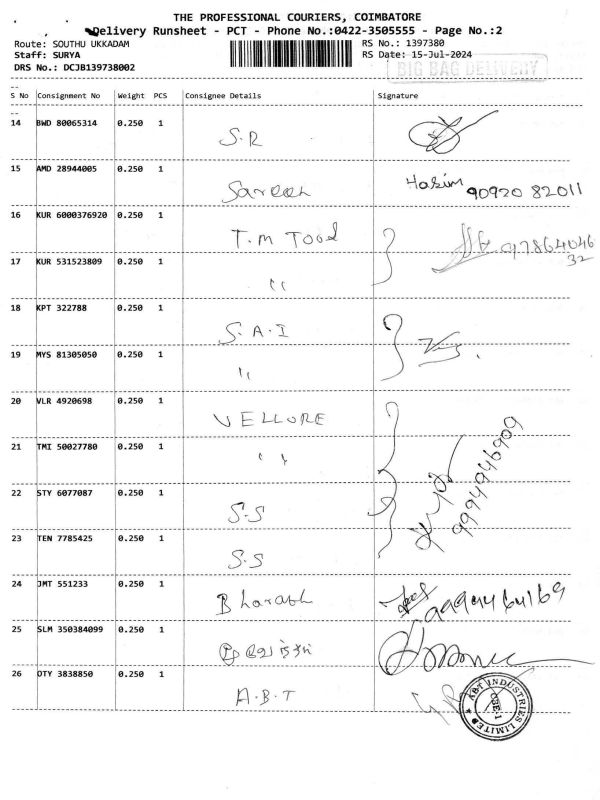 THE PROFESSIONAL COURIERS, COIMBATORE
Delivery Runsheet - PCT - Phone No.:0422-3505555 - Page No.:2
Route: SOUTHU UKKADAM
RS No.: 1397380
Staff: SURYA
RS Date: 15-Jul-2024
DRS No.: DCJB139738002
BIG BAG DELIVERY
S No Consignment No Weight PCS Consignee Details Signature
14 BWD 80065314 0.250 1 S.R
15 AMD 28944005 0.250 1 90920 82011
16 KUR 6000376920 0.250 1 T.M Tood 97864046
32
17 KUR 531523809 0.250 1 ״
18 KPT 322788 0.250 1 S.A.I
19 MYS 81305050 0.250 1 ״
20 VLR 4920698 0.250 1 VELLORE
21 TMI 50027780 0.250 1 ״
9994946909
22 STY 6077087 0.250 1 S.S
23 TEN 7785425 0.250 1 S.S
24 JMT 551233 0.250 1 Bharath
25 SLM 350384099 0.250 1
26 OTY 3838850 0.250 1 A.B.T
ABT INDUSTRIES LIMITED
CBE-1